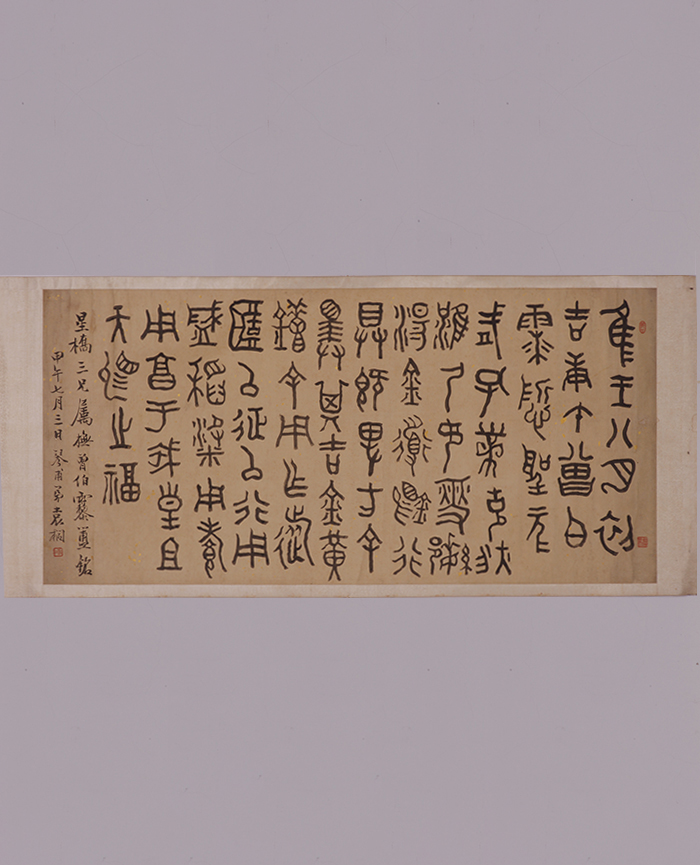 隹王八月初
吉庚午曾白
霥悊聖元
武孔黹克狄
淮尸印燮繁
湯金道錫行
具既卑方余
擇其吉金黃
鑪余用乍旅
匿以征以行用
盛稻粱用孝
用享于我皇且
天賜之福
星橋三兄屬橅曾伯霥簠銘
甲午七月三日琴甫弟袁桐